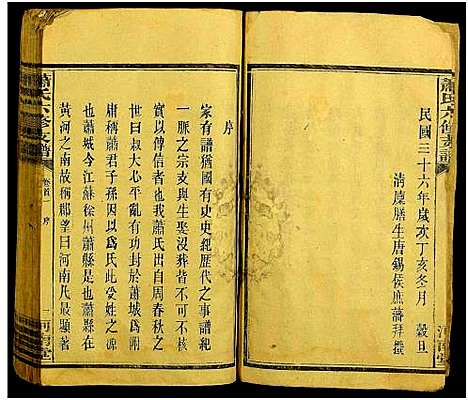 蕭氏六修支譜
民國三十六年歲次丁亥冬月　穀旦
清廩膳生唐錫侯庶藩拜撰
河南堂
序
家有譜猶國有史史紀歷代之事譜紀
一脈之宗支與生娶沒葬皆不可不核
實以傳信者也我蕭氏出自周春秋之
世曰叔大心平亂有功封於蕭城為附
庸稱蕭君子孫因以為氏此受姓之源
也蕭城今江蘇徐州蕭縣是也蕭縣在
黃河之南故稱郡望曰河南凡最顯著
蕭氏六修支譜
卷首
序
二
河南堂